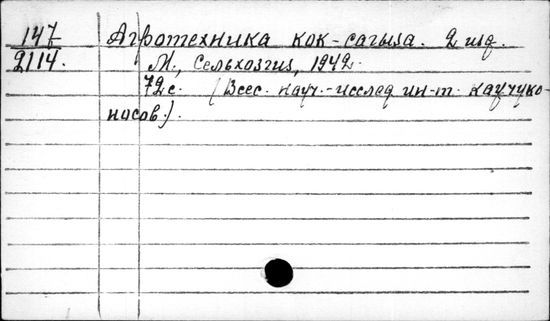 147 Агротехника кок-сагыза. 2 изд.
2114. М., Сельхозгиз, 1942.
72с. (Всес. науч.-исслед ин-т. каучуко-
носов.).